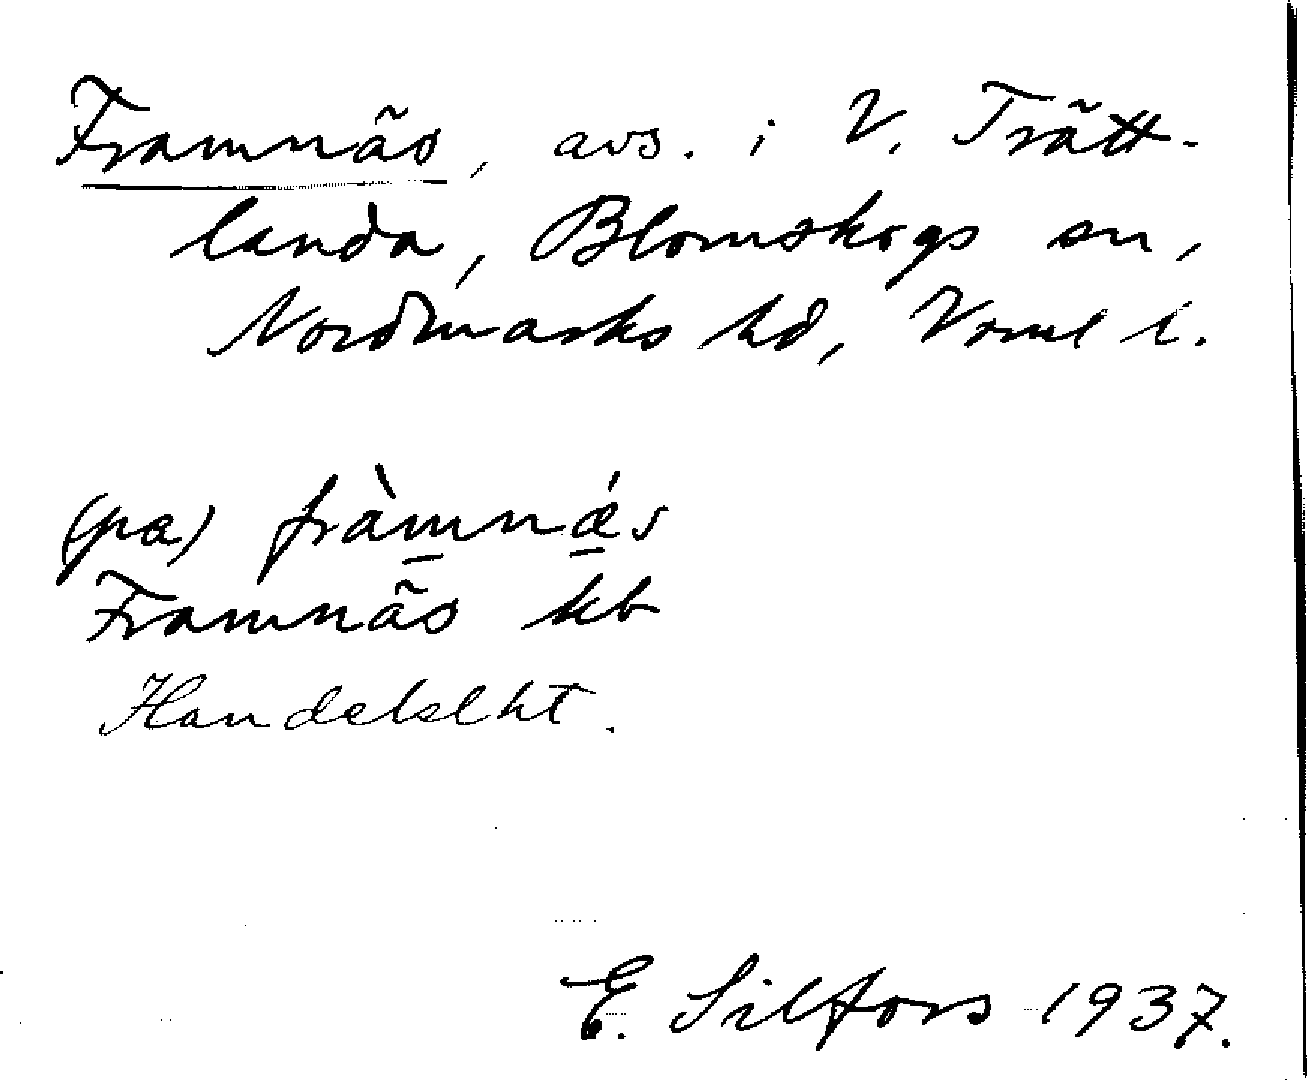 Framnäs, avs. i V. Trätt-
landa, Blomskogs sn,
Nordmarks hd, Vrml l.
(pa) fràmnǽs
Framnäs kb
Handelslht.
E. Silfors 1937.